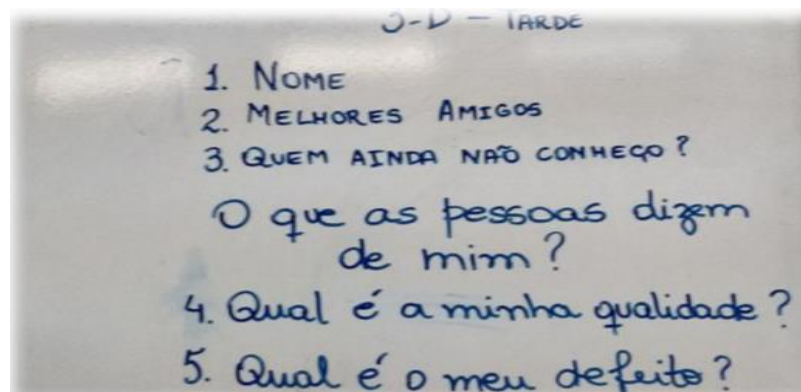 TARDE
1. NOME
2. MELHORES AMIGOS
3. QUEM AINDA NÃO CONHEÇO?
O que as pessoas dizem
de mim?
4. Qual é a minha qualidade?
5. Qual é o meu defeito?